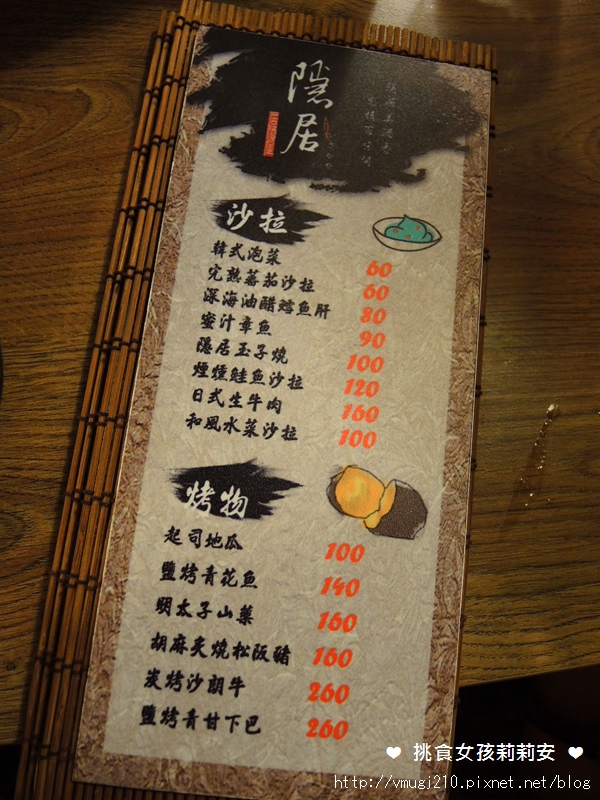 隱居
沙拉
韓式泡菜 60
完熟蕃茄沙拉 60
深海油醋鱈魚肝 80
蜜汁章魚 90
隱居玉子燒 100
煙燻鮭魚沙拉 120
日式生牛肉 160
和風水菜沙拉 100
烤物
起司地瓜 100
鹽烤青花魚 140
明太子山藥 160
胡麻炙燒松阪豬 160
炭烤沙朗牛 260
鹽烤青甘下巴 260
❤ 挑食女孩莉莉安 ❤
http://vmugj210.pixnet.net/blog